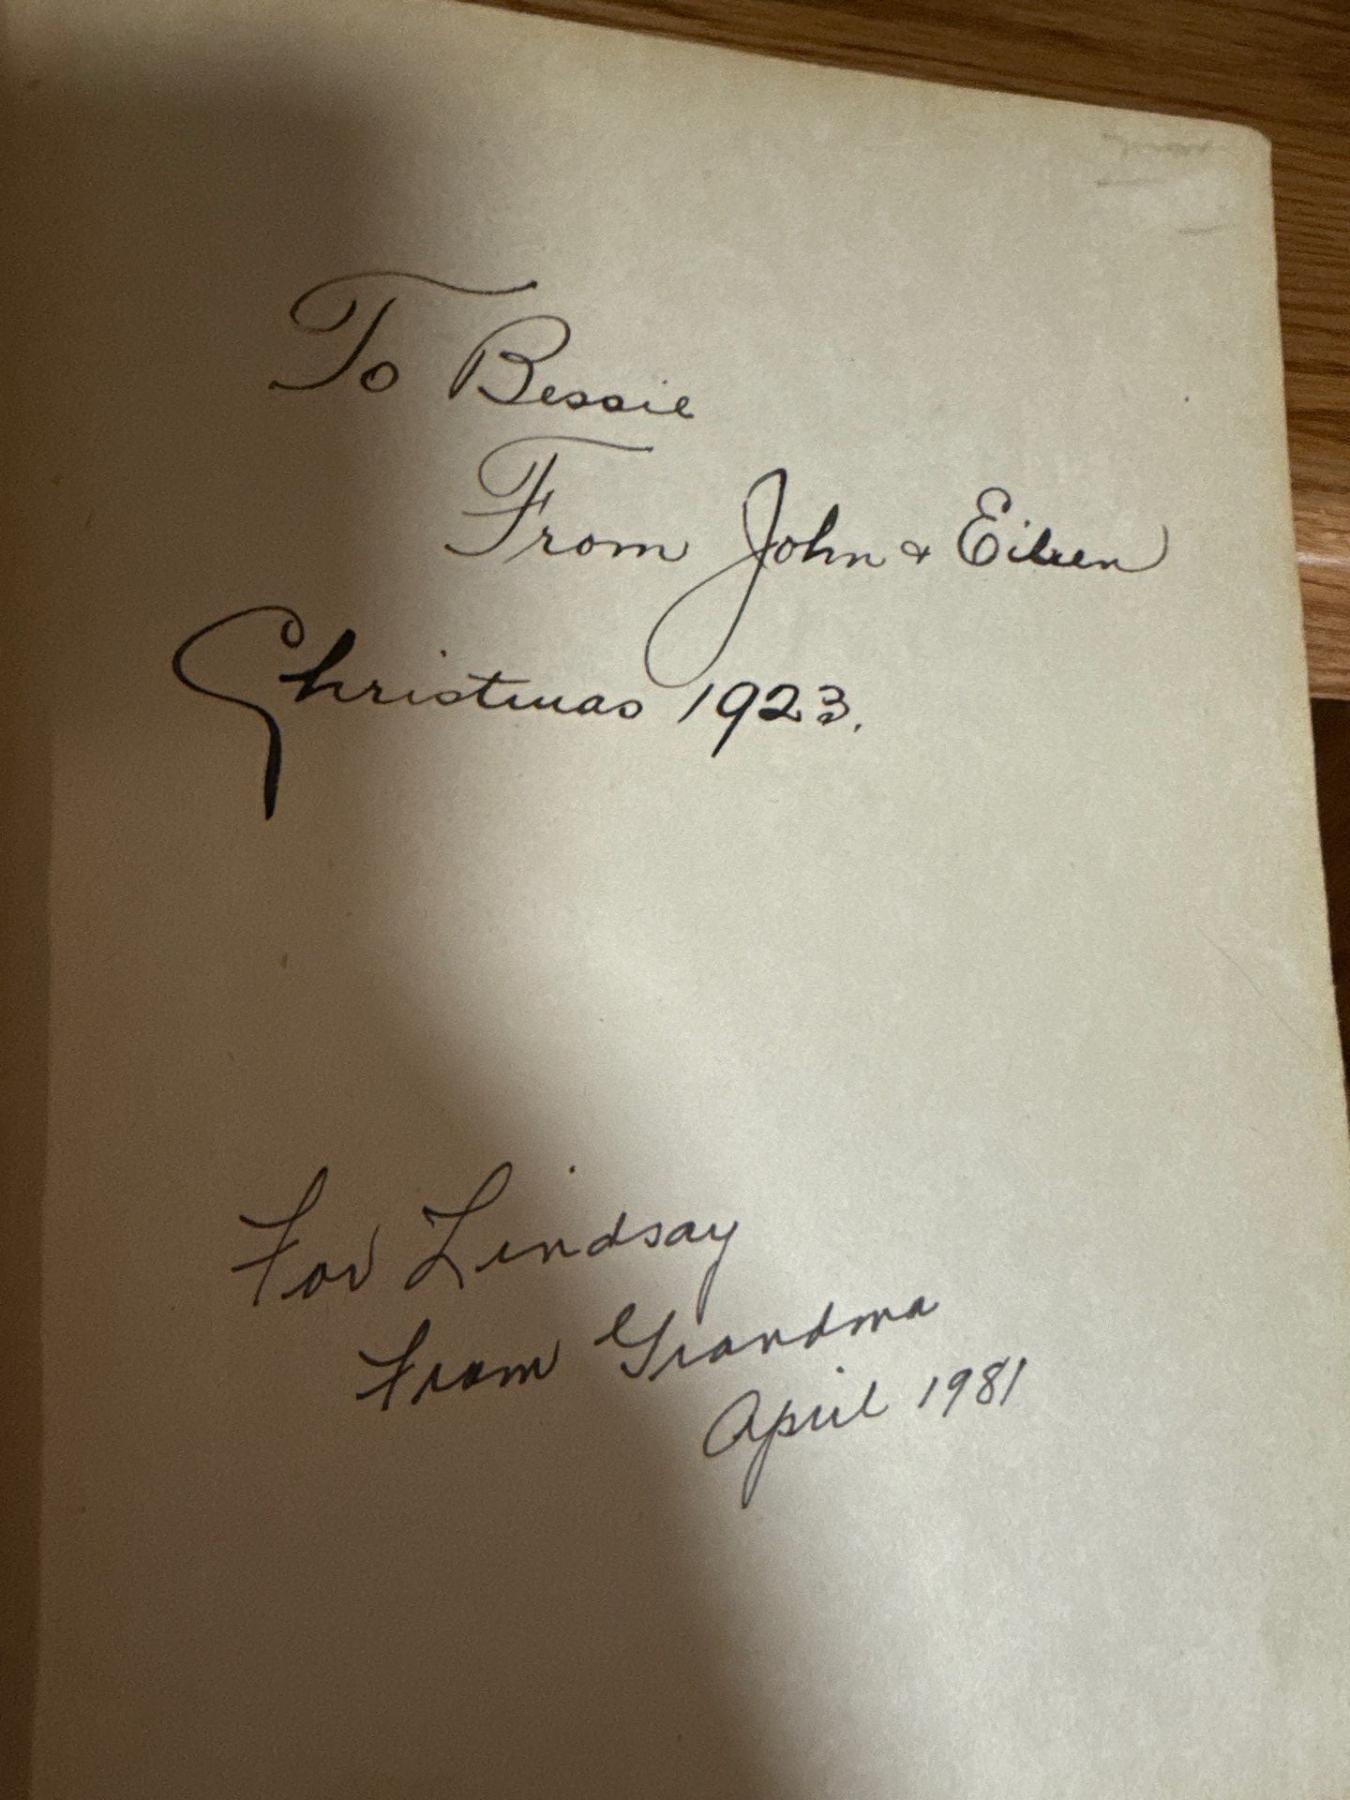 To Bessie
From John & Eileen
Christmas 1923.
For Lindsay
From Grandma
April 1981